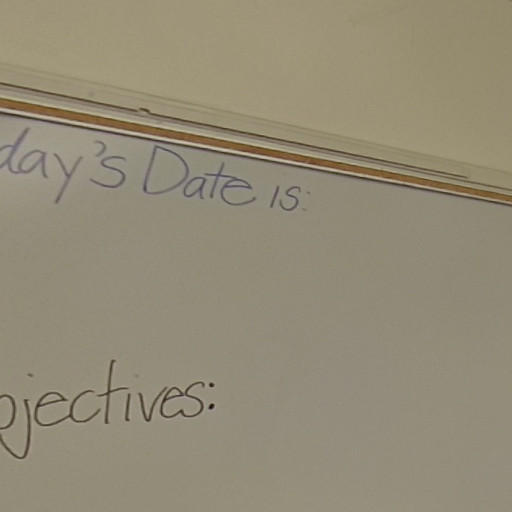 day's Date is:
bjectives: